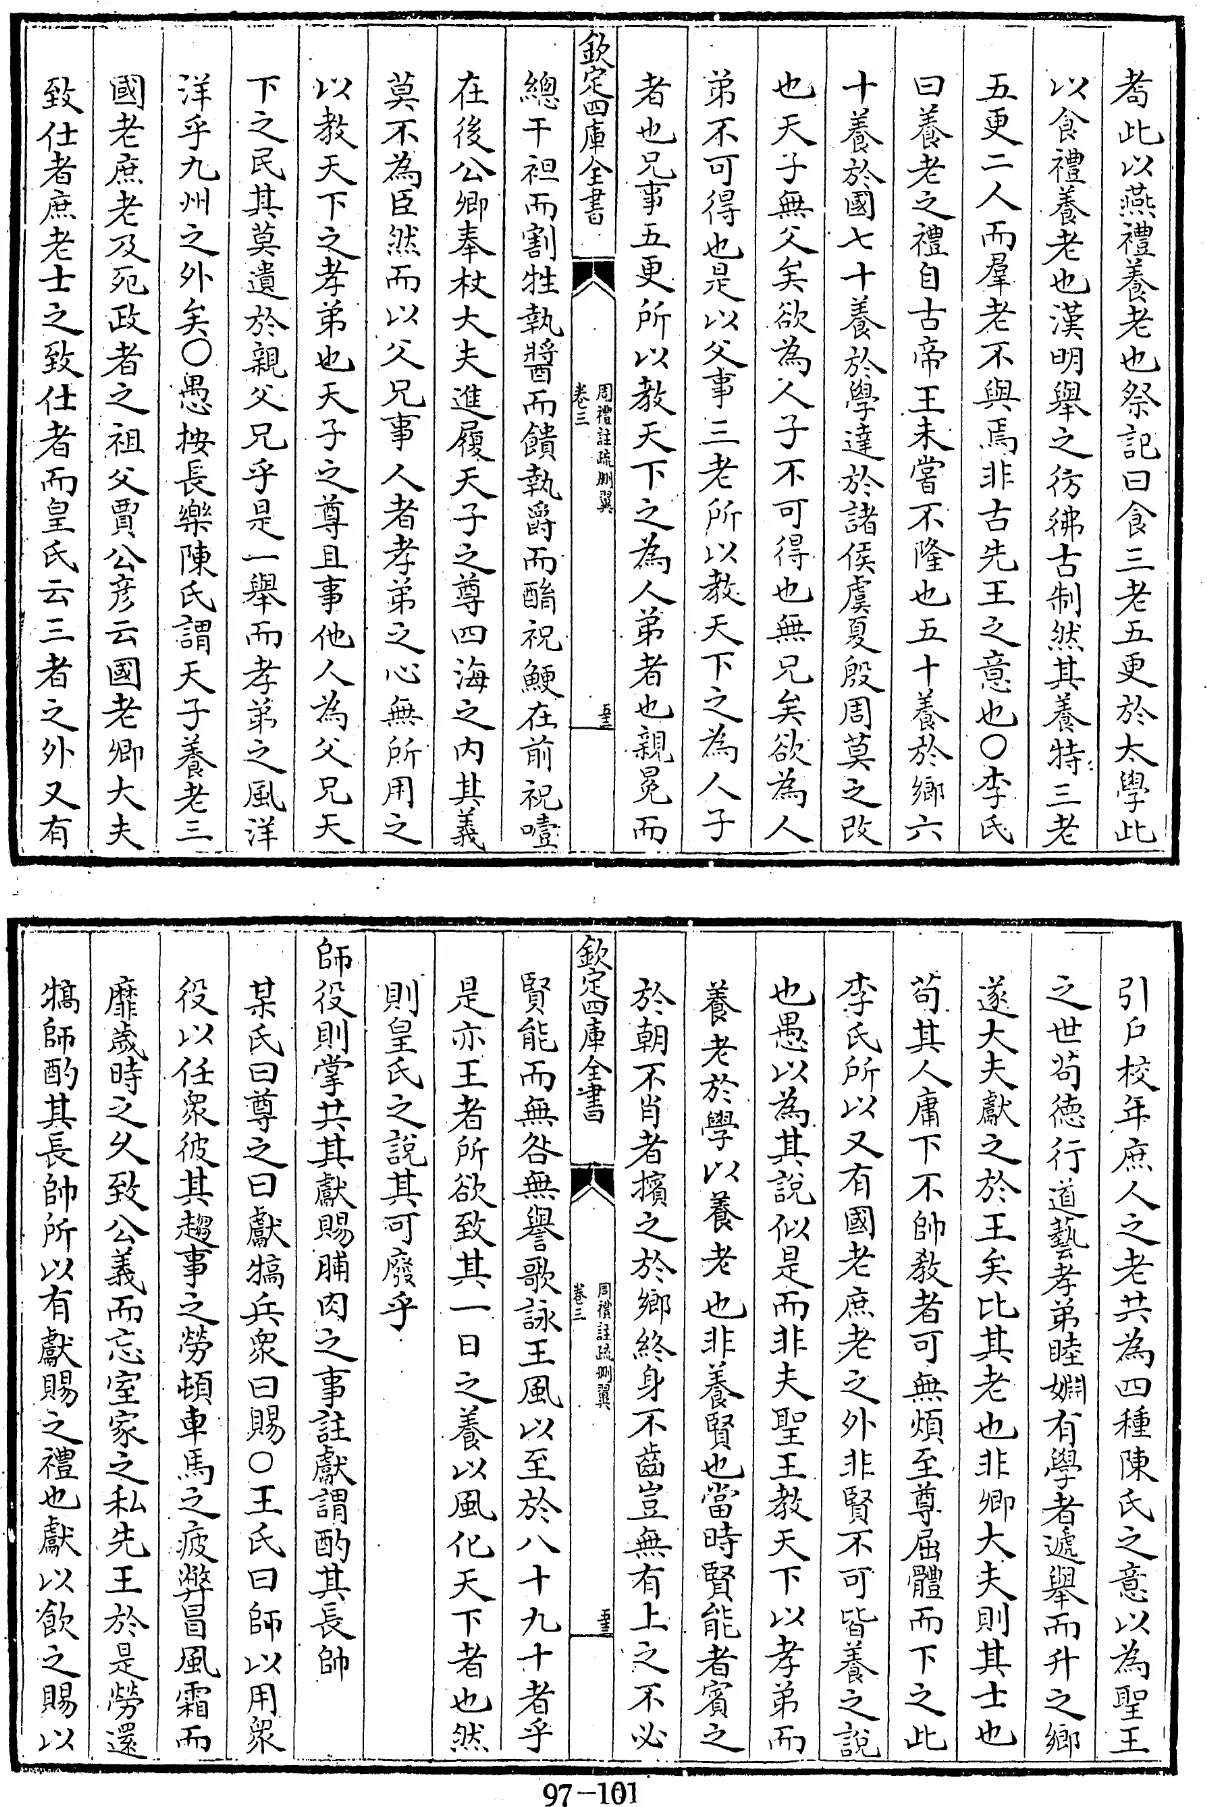 耇此以燕禮養老也祭記曰食三老五更於太學此
以食禮養老也漢明舉之彷彿古制然其養特三老
五更二人而羣老不與焉非古先王之意也〇李氏
曰養老之禮自古帝王未嘗不隆也五十養於鄉六
十養於國七十養於學達於諸侯虞夏殷周莫之改
也天子無父矣欲為人子不可得也無兄矣欲為人
弟不可得也是以父事三老所以教天下之為人子
者也兄事五更所以教天下之為人弟者也親冕而
欽定四庫全書
周禮註疏刪翼
卷三
五十三
總干袒而割牲執醬而饋執爵而酳祝鯁在前祝噎
在後公卿奉杖大夫進履天子之尊四海之内其義
莫不為臣然而以父兄事人者孝弟之心無所用之
以教天下之孝弟也天子之尊且事他人為父兄天
下之民其莫遺於親父兄乎是一舉而孝弟之風洋
洋乎九州之外矣〇愚按長樂陳氏謂天子養老三
國老庶老及死政者之祖父賈公彦云國老卿大夫
致仕者庶老士之致仕者而皇氏云三者之外又有
引户校年庶人之老共為四種陳氏之意以為聖王
之世苟德行道藝孝弟睦婣有學者遞舉而升之鄉
遂大夫獻之於王矣比其老也非卿大夫則其士也
苟其人庸下不帥教者可無煩至尊屈體而下之此
李氏所以又有國老庶老之外非賢不可皆養之說
也愚以為其說似是而非夫聖王教天下以孝弟而
養老於學以養老也非養賢也當時賢能者賓之
於朝不肖者擯之於鄉終身不齒豈無有上之不必
欽定四庫全書
周禮註疏刪翼
卷三
賢能而無咎無譽歌詠王風以至於八十九十者乎
是亦王者所欲致其一日之養以風化天下者也然
則皇氏之說其可廢乎
師役則掌共其獻賜脯肉之事註獻謂酌其長帥
某氏曰尊之曰獻犒兵衆曰賜〇王氏曰師以用衆
役以任衆彼其趨事之勞頓車馬之疲弊冒風霜而
靡歲時之乆致公義而忘室家之私先王於是勞還
犒師酌其長帥所以有獻賜之禮也獻以飲之賜以
97-101